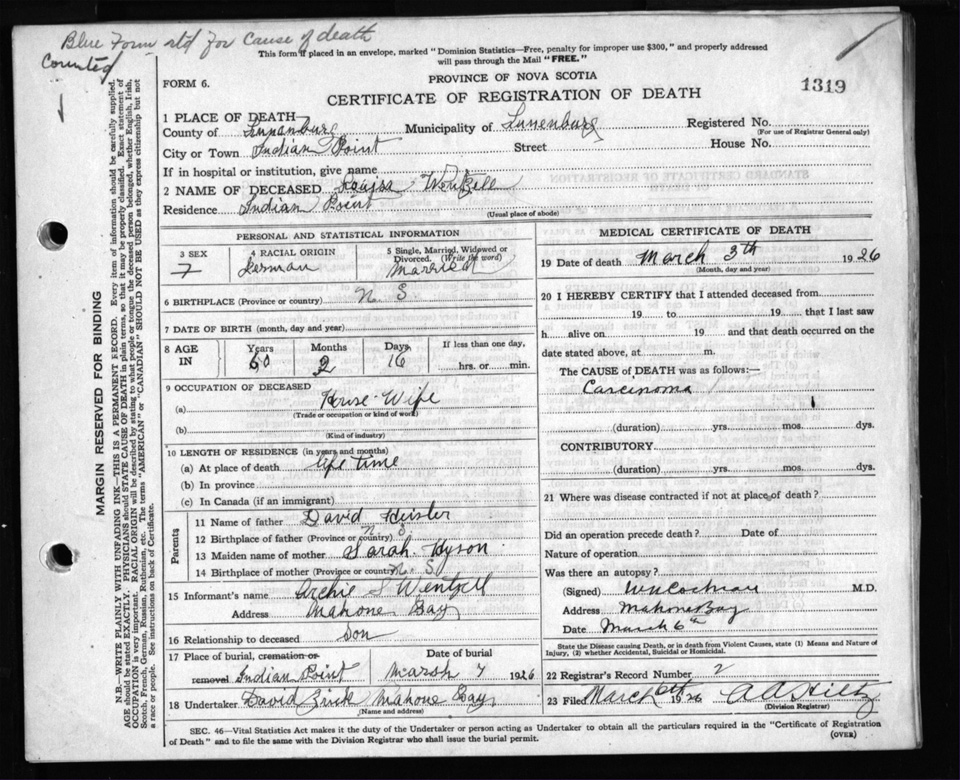 Blue Form std for Cause of death
Counted
This form if placed in an envelope, marked "Dominion Statistics—Free, penalty for improper use $300," and properly addressed
will pass through the Mail "FREE."
FORM 6.
PROVINCE OF NOVA SCOTIA
1319
CERTIFICATE OF REGISTRATION OF DEATH
1 PLACE OF DEATH
County of Lunenburg Municipality of Lunenburg Registered No.
(For use of Registrar General only)
City or Town Indian Point Street House No.
If in hospital or institution, give name
2 NAME OF DECEASED Louisa Wentzell
Residence Indian Point
(Usual place of abode)
PERSONAL AND STATISTICAL INFORMATION
3 SEX 4 RACIAL ORIGIN 5 Single, Married, Widowed or
Divorced. (Write the word)
F German Married
6 BIRTHPLACE (Province or country) N. S
7 DATE OF BIRTH (month, day and year)
8 AGE IN Years Months Days If less than one day,
60 2 16 hrs. or min.
9 OCCUPATION OF DECEASED
(a) House-Wife
(Trade or occupation or kind of work)
(b)
(Kind of industry)
10 LENGTH OF RESIDENCE (in years and months)
(a) At place of death life time
(b) In province
(c) In Canada (if an immigrant)
Parents
11 Name of father David Heisler
12 Birthplace of father (Province or country) N S
13 Maiden name of mother Sarah Hyson
14 Birthplace of mother (Province or country) N. S.
15 Informant's name Archie S Wentzell
Address Mahone Bay
16 Relationship to deceased Son
17 Place of burial, cremation or
removal Indian Point
Date of burial
March 7 1926
18 Undertaker David Mahone Bay
(Name and address)
MEDICAL CERTIFICATE OF DEATH
19 Date of death March 3th 1926
(Month, day and year)
20 I HEREBY CERTIFY that I attended deceased from
19 to 19 that I last saw
h alive on 19 and that death occurred on the
date stated above, at m.
The CAUSE of DEATH was as follows:—
Carcinoma
(duration) yrs. mos. dys.
CONTRIBUTORY
(duration) yrs. mos. dys.
21 Where was disease contracted if not at place of death?
Did an operation precede death? Date of
Nature of operation
Was there an autopsy?
(Signed) W N Cochran M.D.
Address Mahone Bay
Date March 6th
State the Disease causing Death, or in death from Violent Causes, state (1) Means and Nature of
Injury, (2) whether Accidental, Suicidal or Homicidal.
22 Registrar's Record Number 2
23 Filed March 6th 1926 A A Hiltz
(Division Registrar)
SEC. 46—Vital Statistics Act makes it the duty of the Undertaker or person acting as Undertaker to obtain all the particulars required in the "Certificate of Registration
of Death" and to file the same with the Division Registrar who shall issue the burial permit.
(OVER)
MARGIN RESERVED FOR BINDING
N.B.—WRITE PLAINLY WITH UNFADING INK—THIS IS A PERMANENT RECORD. Every item of information should be carefully supplied.
AGE should be stated EXACTLY. PHYSICIANS should STATE CAUSE OF DEATH in plain terms, so that it may be properly classified. Exact statement of
OCCUPATION is very important. RACIAL ORIGIN will be described by stating to what people or tongue the deceased person belonged, whether English, Irish,
Scotch, French, German, Russian, Ruthenian, etc. The terms "AMERICAN" or "CANADIAN" SHOULD NOT BE USED as they express citizenship but not
a race or people. See instructions on back of Certificate.